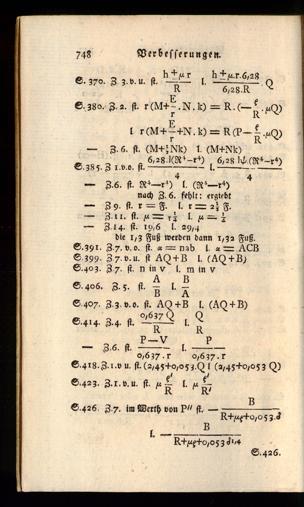 748 Verbesserungen.
S. 370. Z 3. v. u. st. (h + μ r)/R l. (h + μ.r.6,28)/(6,28.R) . Q
S. 380. Z. 2. st. r (M + E/r . N. k) = R. (— ρ/R . μQ)
l r (M + E/r + N. k) = R (P — ρ/R . μQ)
— Z. 6. st. (M+½Nk) l. (M+Nk)
S. 385. Z 1. v. o. st. 
— Z. 6. st. l.
nach Z. 6. fehlt: ergiebt
— Z 9. st. r = F. l. r = 2½ F.
— Z. 11. st. μ = l. μ =
— Z. 14. st. 19,6 l. 29,4
die 1,3 Fuß werden dann 1,32 Fuß.
S. 391. Z. 7. v. o. st. α = nab l. α = ACB
S. 399. Z. 7. v. u. st AQ + B l. (AQ + B)
S. 403. Z. 7. st. n in v l. m in v
S. 406. Z. 5. st. A/B l. B/A
S. 407. Z. 3. v. o. st. AQ + B l. (AQ + B)
S. 414. Z. 4. st. (0,637 Q)/R l. Q/R
— Z. 6. st. (P — V)/(0,637. r) l. P/(0,637. r)
S. 418. Z. 1. v. u. st. (2,45+0,053. Q l (2,45+0,053 Q)
S. 423. Z. 1. v. u. st. μ ρ'/R l. μ ρ'/R'
S. 426. Z. 7. im Werth von P'' st. — B/(R+μρ+0,053.δ
l. — B/(R+μρ+0,053 δ¹,⁴
S. 426.